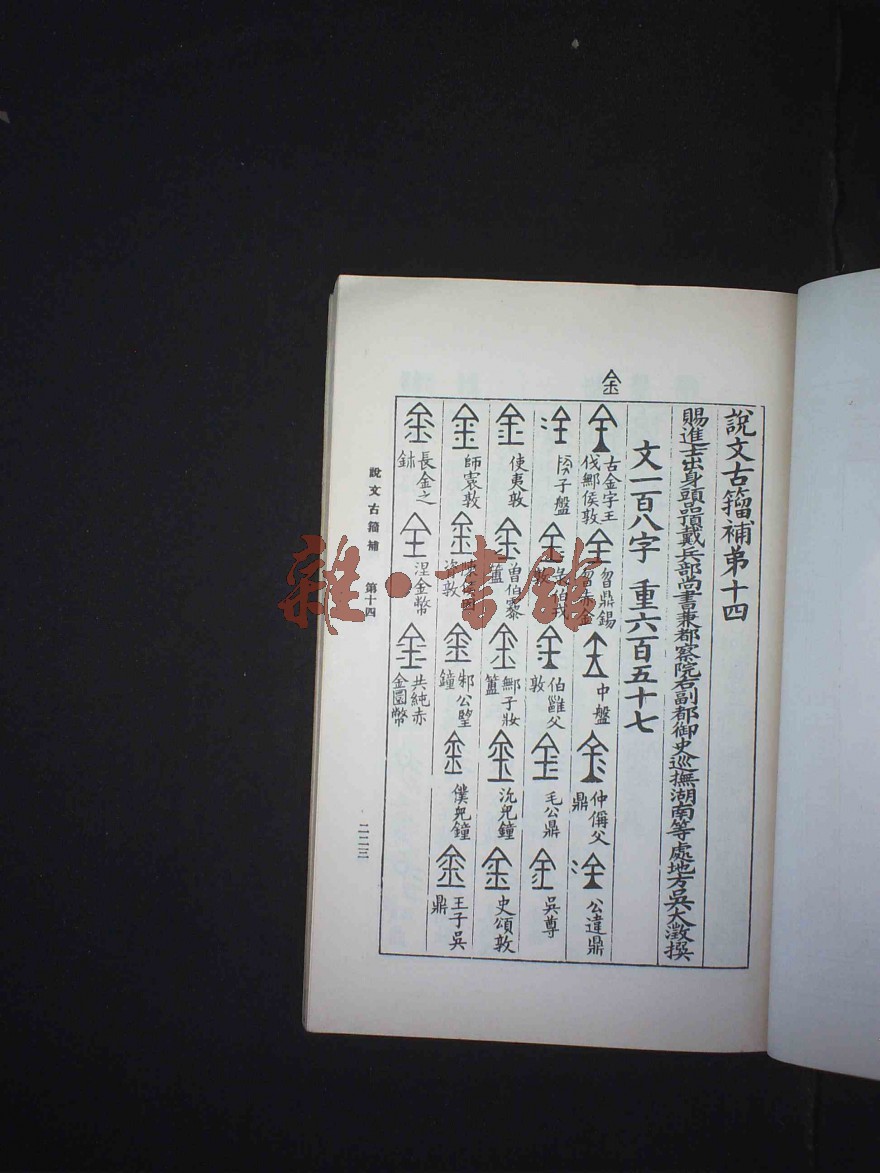 金
說文古籀補弟十四
賜進士出身頭品頂戴兵部尚書兼都察院右副都御史巡撫湖南等處地方吳大澂撰
文一百八字 重六百五十七
金 古金字王伐鄦侯敦 金 曶鼎錫曶赤金 金 中盤 金 仲偁父鼎 金 公違鼎
金 子盤 金 伯戎敦 金 伯雝父敦 金 毛公鼎 金 吳尊
金 使夷敦 金 曾伯黍簠 金 鄦子妝簠 金 沇兒鐘 金 史頌敦
金 師寰敦 金 敦 金 邾公鐘 金 僕兒鐘 金 王子吳鼎
金 長金之鉥 金 涅金幣 金 共純赤金圜幣
說文古籀補 第十四
二二三
雜·書館